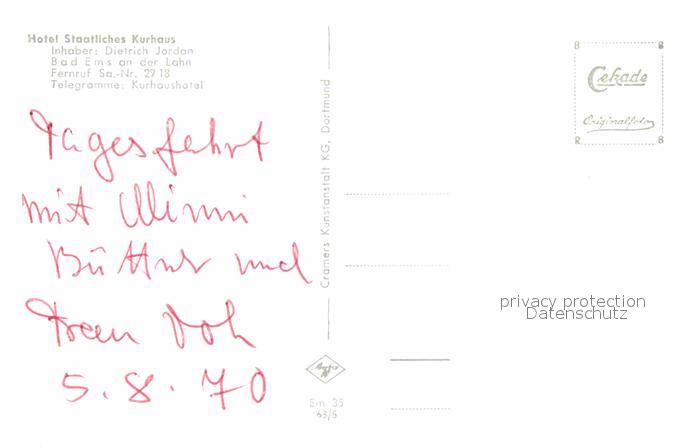 Hotel Staatliches Kurhaus
Inhaber: Dietrich Jordan
Bad Ems an der Lahn
Fernruf Sa.-Nr. 29 18
Telegramme: Kurhaushotel
Tagesfahrt
mit Minni
Büttner und
5.8.70
Cramers Kunstanstalt KG, Dortmund
Agfa
Em 35
63/5
Cekade
Originalfoto
privacy protection
Datenschutz